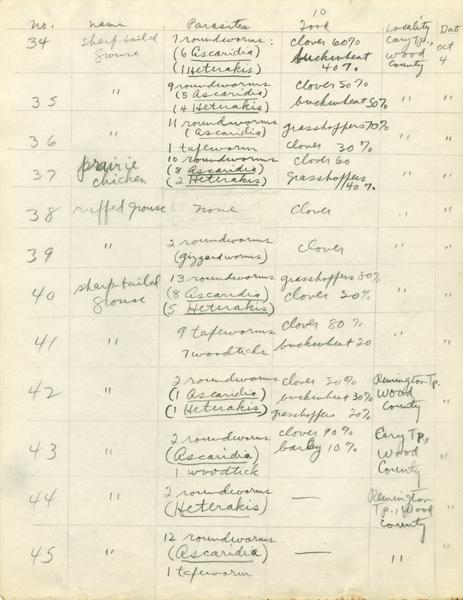 10
no. name Parasites Food Locality Date
34 sharp-tailed grouse 7 roundworms: clover 60% Cary Tp., Oct
(6 Ascaridia) buckwheat Wood 4
(1 Heterakis) 40% County
35 " 9 roundworms clover 50% " "
(5 Ascaridia)
(4 Heterakis) buckwheat 50%
36 " 11 roundworms grasshoppers 70% " "
(Ascaridia)
1 tapeworm clover 30%
37 prairie chicken 10 roundworms clover 60 " "
(8 Ascaridia) grasshoppers
(2 Heterakis) 40%
38 ruffed grouse none clover " "
39 " 2 roundworms clover " "
(gizzard worms)
40 sharp-tailed grouse 13 roundworms grasshoppers 80% " "
(8 Ascaridia) clover 20%
(5 Heterakis)
41 " 9 tapeworms clover 80% " "
7 woodticks buckwheat 20
42 " 2 roundworms clover 50% Remington Tp. "
(1 Ascaridia) buckwheat 30% Wood
(1 Heterakis) grasshoppers 20% County
43 " 2 roundworms clover 90% Cary Tp., "
(Ascaridia) barley 10% Wood
1 woodtick County
44 " 2 roundworms — Remington "
(Heterakis) Tp., Wood
County
45 " 12 roundworms — " "
(Ascaridia)
1 tapeworm